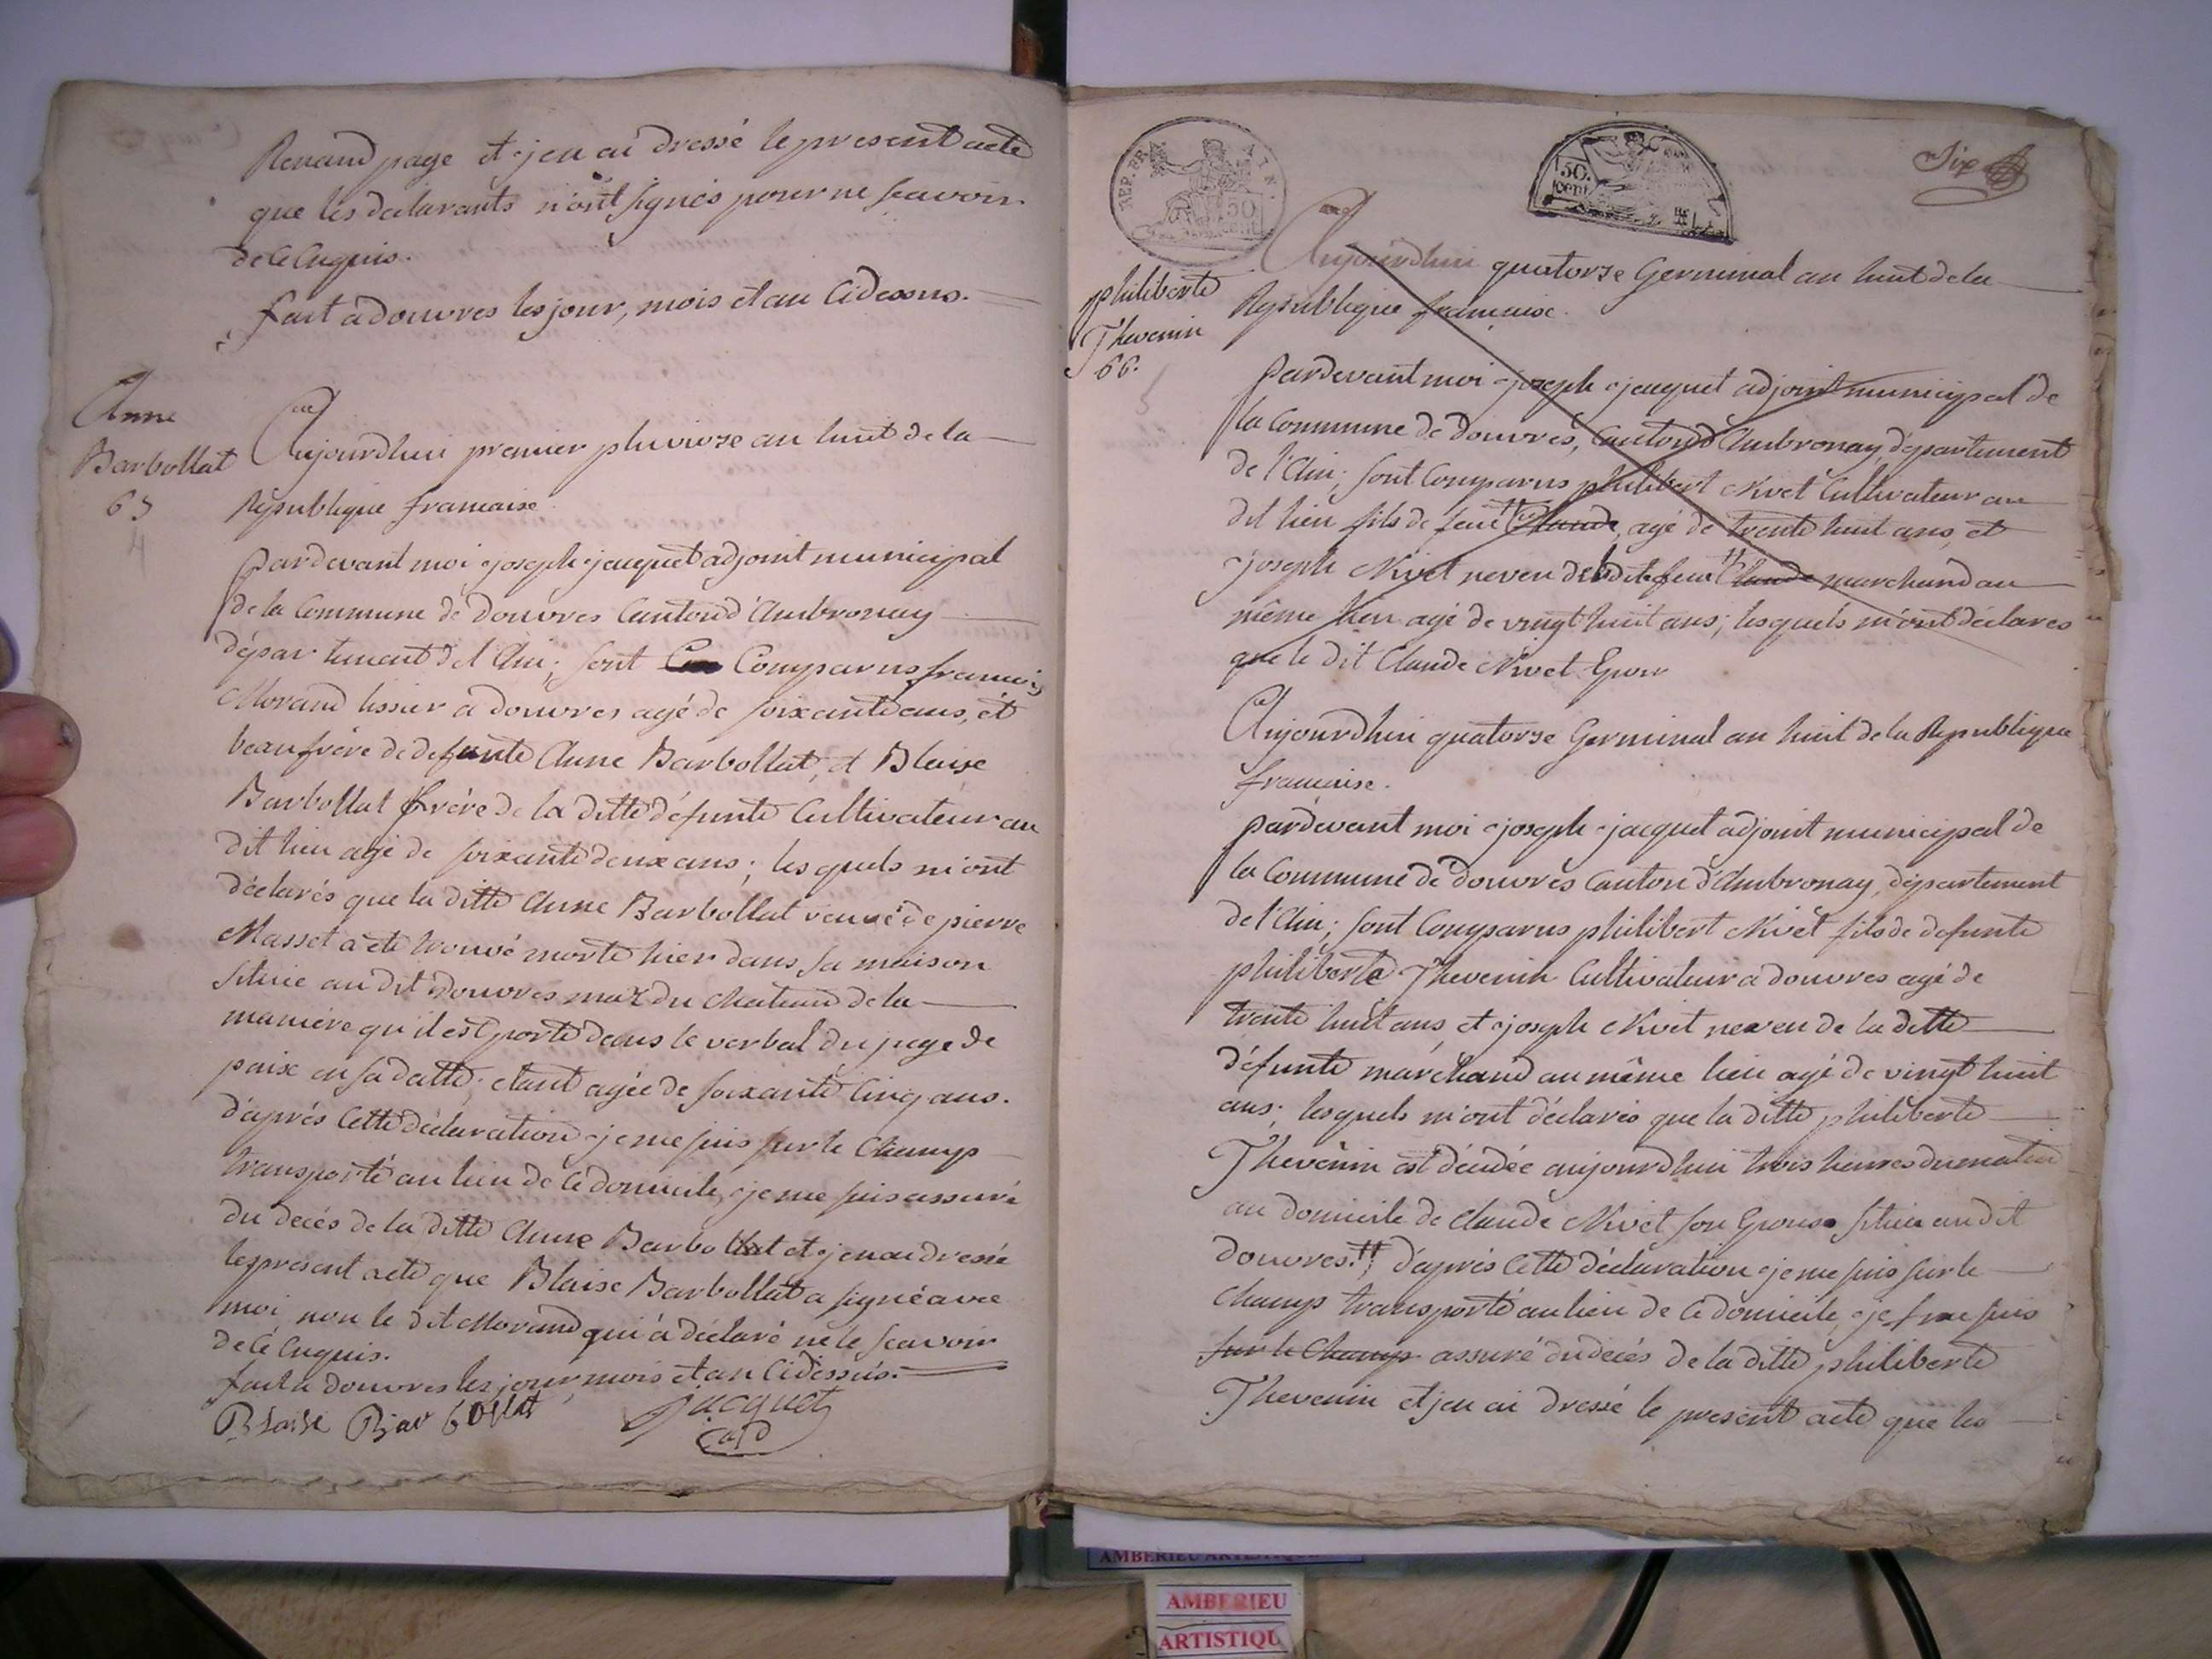 Renaud page et j'en ai dressé le present acte
que les declarants n'ont signés pour ne scavoir
de ce enquis.
fait a douvres les jour, mois et an cidessus.
Anne
Barbollat
65
4
Aujourdhui premier pluviose an huit de la
République francaise.
pardevant moi joseph jacquet adjoint municipal
de la Commune de Douvres Canton d'Ambronay
département de l'Ain; sont Comparus francois
Morand tissier a douvres agé de soixante ans, et
beaufrére de defunte Anne Barbollat, et Blaise
Barbollat frère de la ditte défunte Cultivateur au
dit lieu agé de soixante deux ans; les quels m'ont
déclarés que la ditte Anne Barbollat veuve de pierre
Masset a été trouvé morte hier dans sa maison
situee au dit Douvres max du chateau de la
maniére qu'il est porté dans le verbal du juge de
paix en sa datte; etant agée de soixante Cinq ans.
d'aprés Cette déclaration je me suis sur le Champ
transporté au lieu de Ce domicile, je me suis assuré
du decés de la ditte Anne Barbollat et j'en ai dressé
le present acte que Blaise Barbollat a signé avec
moi non le dit Morand qui a déclaré ne le scavoir
de Cé Enquis.
fait a douvres les jour, mois et an Cidessus.
Blaise Barbollat jacquet
adj
REP. FRA
50
cent
50.
cent
Six
philiberte
Thevenin
66.
5
Aujourdhui quatorze Germinal an huit de la
République francaise.
pardevant moi joseph jacquet adjoint municipal de
la Commune de Douvres, Canton d'Ambronay, département
de l'Ain; sont Comparus philibert Nivet Cultivateur au
dit lieu fils de feu Claude, agé de trente huit ans, et
joseph Nivet neveu dudit feu Claude marchand au
même lieu agé de vingt huit ans; lesquels m'ont déclarés
que le dit Claude Nivet Epou
Aujourdhui quatorze Germinal an huit de la Republique
francaise.
pardevant moi joseph jacquet adjoint municipal de
la Commune de douvres Canton d'Ambronay, département
de l'Ain; sont Comparus philibert Nivet fils de defunte
philiberte Thevenin Cultivateur a douvres agé de
trente huit ans, et joseph Nivet neveu de la ditte
défunte marchand au même lieu agé de vingt huit
ans; lesquels m'ont déclarés que la ditte philiberte
Thevenin est décédée aujourdhui trois heures du matin
au domicile de Claude Nivet son Epoux situé au dit
douvres. d'aprés Cette déclaration je me suis sur le
Champ transporté au lieu de Ce domicile, je me suis
sur le Champ assuré du decés de la ditte philiberte
Thevenin et j'en ai dressé le present acte que les
AMBERIEU ARTISTIQUE
AMBERIEU
ARTISTIQU